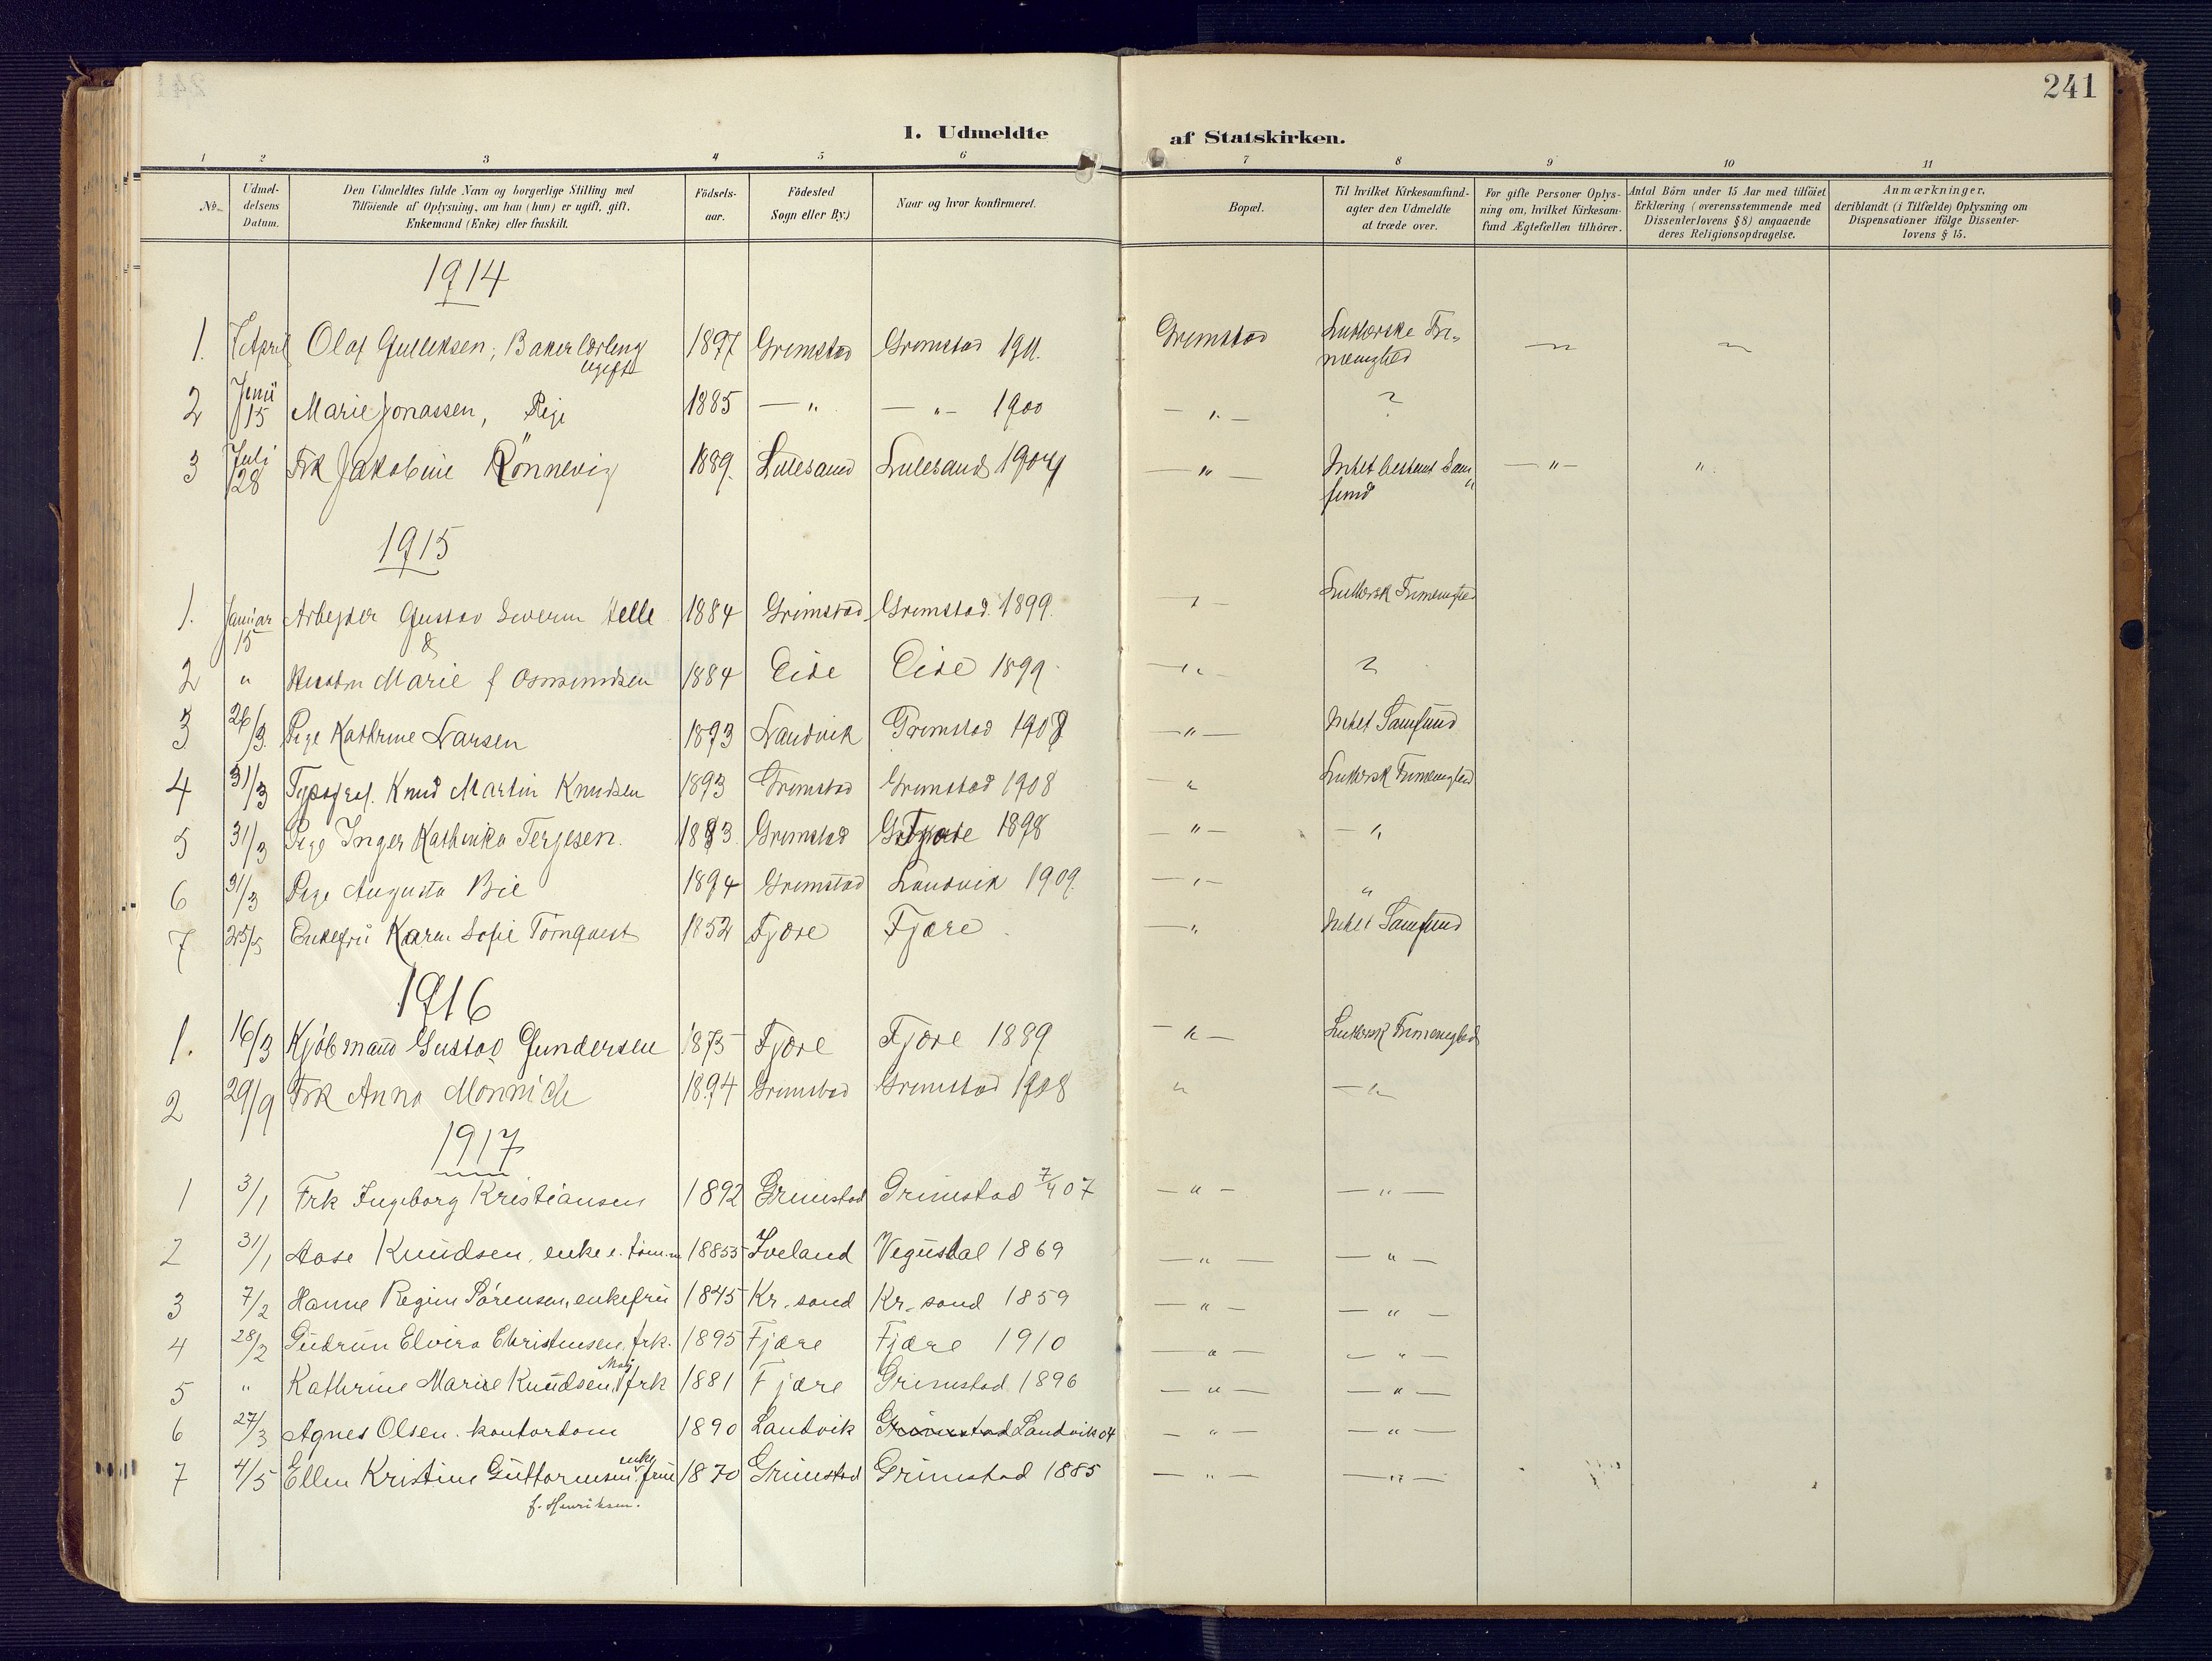 241
1. Udmeldte af Statskirken.
1 2 3 4 5 6 7 8 9 10 11
No. | Udmeldelsens Datum. | Den Udmeldtes fulde Navn og borgerlige Stilling med Tilföiende af Oplysning, om han (hun) er ugift, gift, Enkemand (Enke) eller fraskilt. | Födselsaar. | Födested Sogn eller By.) | Naar og hvor konfirmeret. | Bopæl. | Til hvilket Kirkesamfund agter den Udmeldte at træde over. | For gifte Personer Oplysning om, hvilket Kirkesamfund Ægtefællen tilhörer. | Antal Börn under 15 Aar med tilföiet Erklæring (overensstemmende med Dissenterlovens § 8) angaaende deres Religionsopdragelse. | Anmærkninger, deriblandt (i Tilfælde) Oplysning om Dispensationer ifölge Dissenterlovens § 15.
1914
1. 7 April Olaf Gulliksen, Bakerlærling ugift 1897 Grimstad Grimstad 1911. Grimstad Lutherske Frimenighed
2 Juni 15 Marie Jonassen, Pige 1885 — " — " — 1900 — " — ?
3 Juli 28 Frk Jakobine Rönnevig 1889. Lillesand Lillesand 1904 — " — Intet bestemt Samfund — " — "
1915
1. Januar 15 Arbeider Gustav Severin Helle 1884 Grimstad Grimstad 1899. — " — Luthersk Frimenighed
&
2 " Hustru Marie f Osmundsen 1884 Eide Eide 1899 — " — ?
3 26/3. Pige Kathrine Larsen 1893 Landvik Grimstad 1908 — " — Intet Samfund
4 31/3 Typograf. Knud Martin Knudsen 1893 Grimstad Grimstad 1908 — " Luthersk Frimenighed
5 31/3 Pige Inger Kathinka Terjesen. 1883 Grimstad Fjære 1898 — " — — "
6 31/3 Pige Augusta Bie 1894 Grimstad Landvik 1909. — " — "
7 25/5 Enkefru Karen Sofie Törnquist 1852 Fjære Fjære. — " Intet Samfund
1916
1. 16/3 Kjöbmand Gustav Gundersen 1875 Fjære Fjære 1889 — " — Luthersk Frimenighed
2 29/9 Frk Anna Mönnich 1894 Grimstad Grimstad 1908 " — " —
1917
1 3/1 Frk Ingeborg Kristiansen 1892 Grimstad Grimstad 7/4 07 — " — — " —
2 31/1 Aase Knudsen, enke e. tömm 18855 Iveland Vegusdal 1869 — " — — " —
3 7/2 Hanne Regine Sörensen, enkefru 1845 Kr.sand Kr.sand 1859 — " — — " —
4 28/2 Gudrun Elvira Christensen, frk. 1895 Fjære Fjære 1910 — " — — " —
5 " Kathrine Marie Knudsen, frk 1881 Fjære Grimstad 1896 — " — — " —
6 27/3 Agnes Olsen. kontordam 1890 Landvik Grimstad Landvik 04 — " — — " —
7 4/5 Ellen Kristine Guttormsen. enkefrue 1870 Grimstad Grimstad 1885 — " — — " —
f. Henriksen.